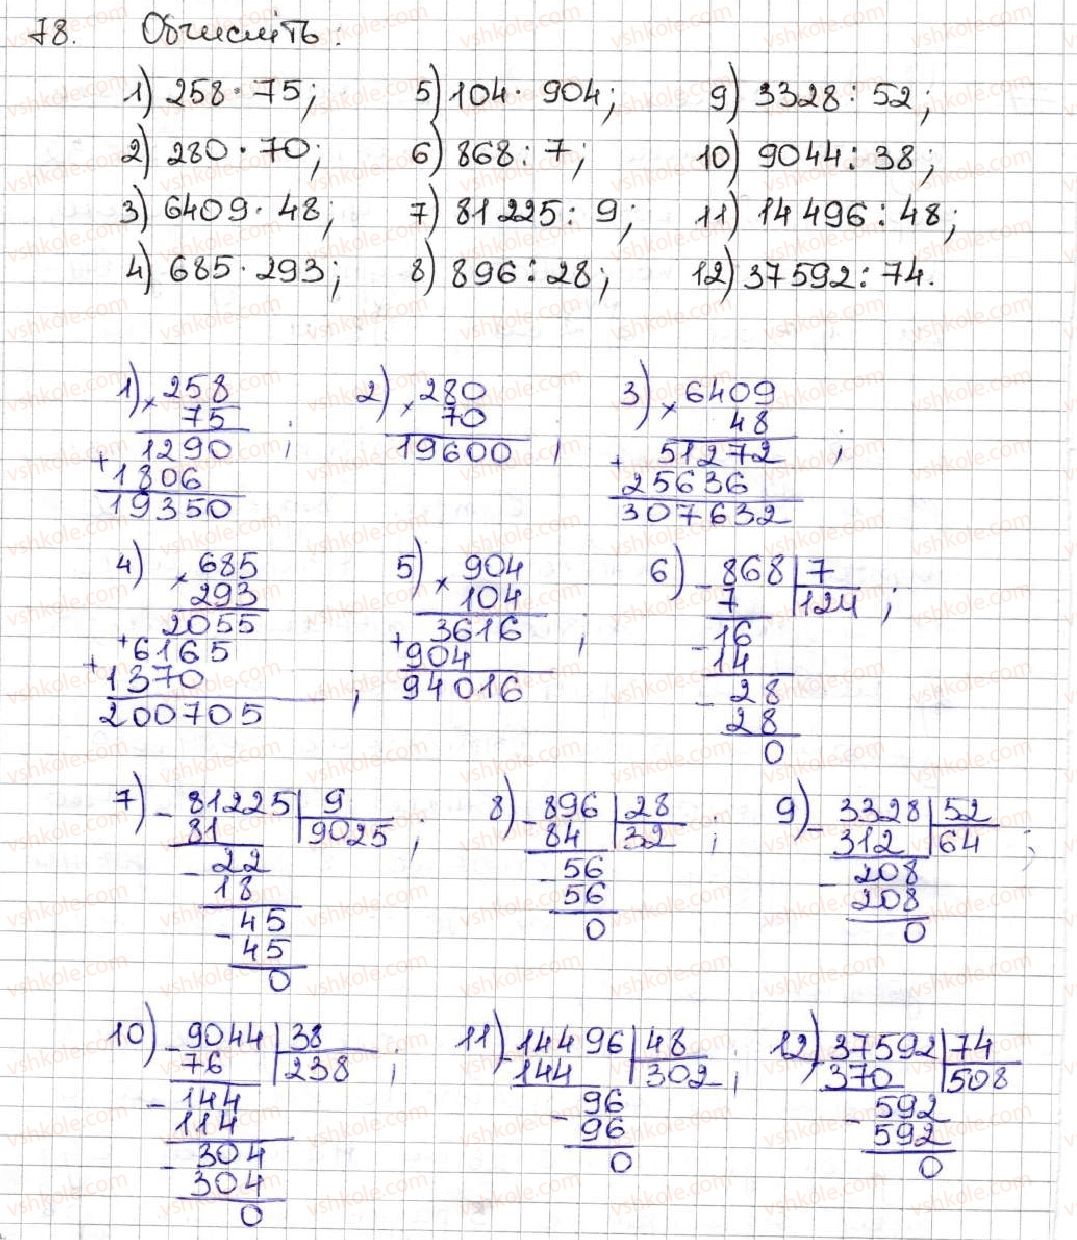 78. Обчисліть:
1) 258 · 75; 5) 104 · 904; 9) 3328 : 52;
2) 280 · 70; 6) 868 : 7; 10) 9044 : 38;
3) 6409 · 48; 7) 81225 : 9; 11) 14496 : 48;
4) 685 · 293; 8) 896 : 28; 12) 37592 : 74.
1) × 258
75
1290 ;
+ 1806
19350
2) × 280
70
19600 ;
3) × 6409
48
51272 ;
+ 25636
307632
4) × 685
293
2055
+ 6165
+ 1370
200705 ;
5) × 904
104
3616 ;
+ 904
94016
6) - 868 | 7
7 | 124 ;
- 16
14
- 28
28
0
7) - 81225 | 9
81 | 9025 ;
- 22
18
- 45
45
0
8) - 896 | 28
84 | 32 ;
- 56
56
0
9) - 3328 | 52
312 | 64 ;
- 208
208
0
10) - 9044 | 38
76 | 238 ;
- 144
114
- 304
304
0
11) - 14496 | 48
144 | 302 ;
- 96
96
0
12) - 37592 | 74
370 | 508
- 592
592
0
vshkole.com